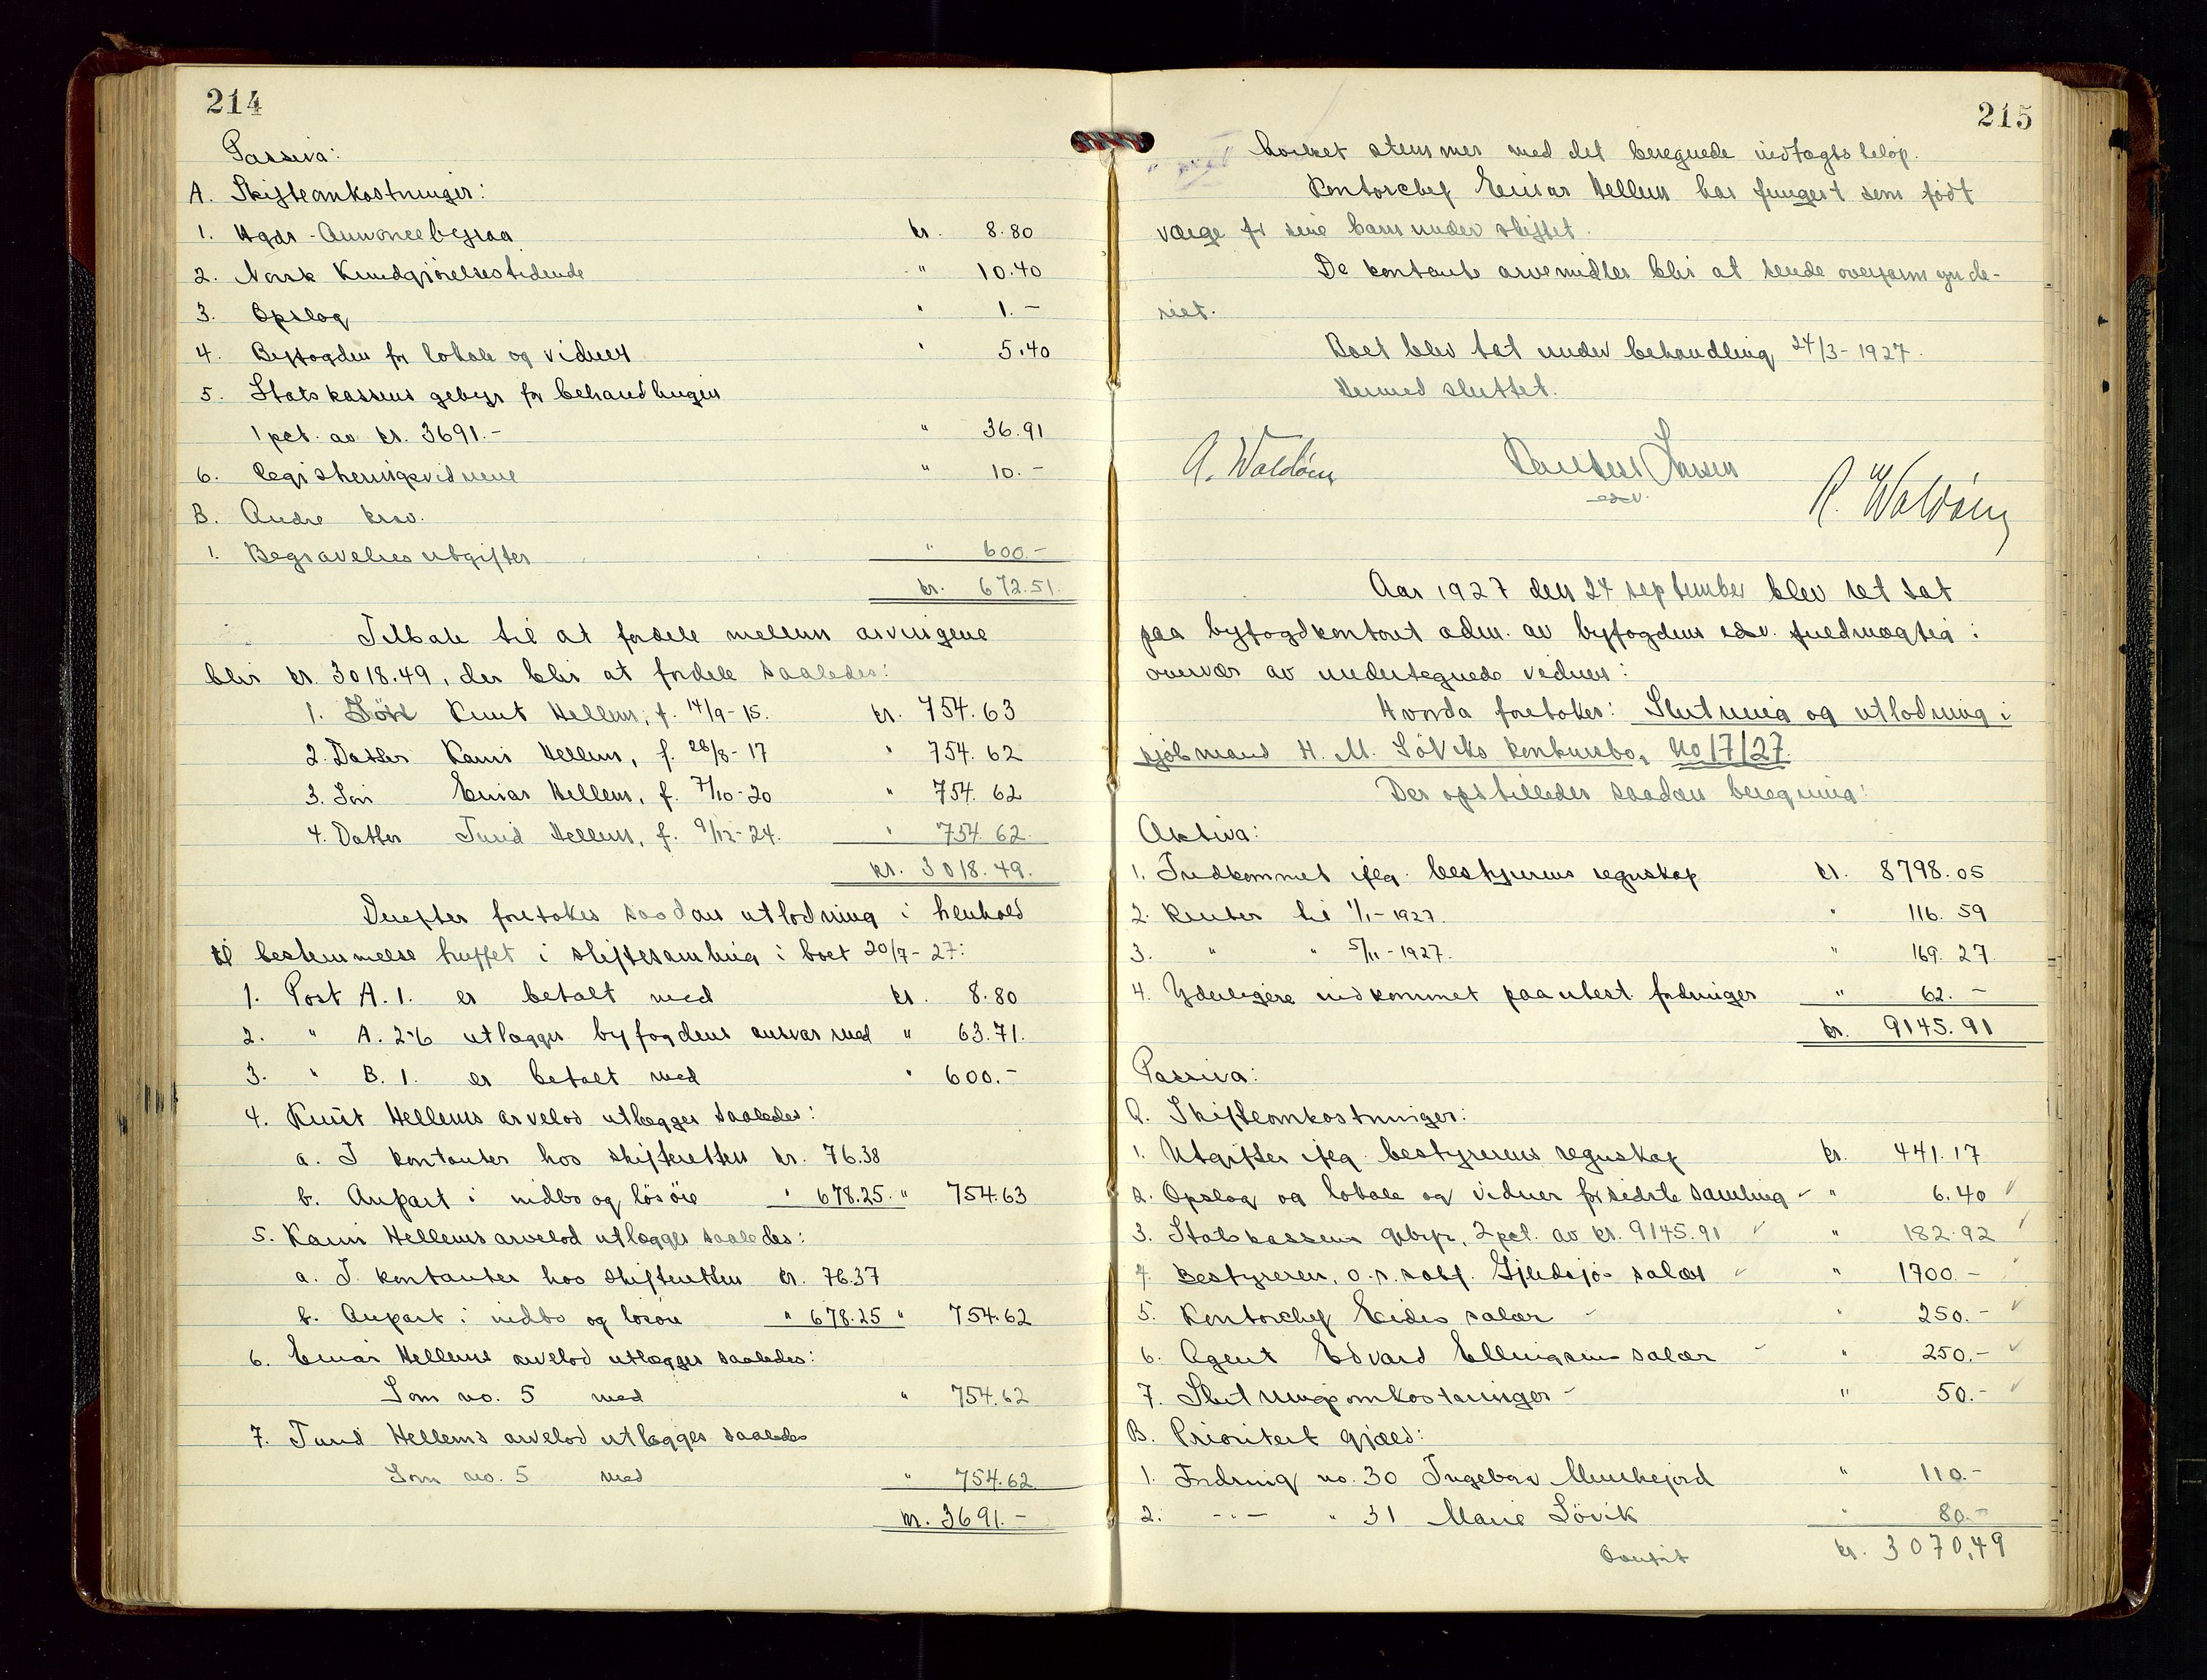 214
Passiva:
A. Skifteomkostninger:
1. Hgds-Annoncebyraa kr. 8.80
2. Norsk Kundgjørelsestidende " 10.40
3. Opslag " 1.-
4. Byfogden for lokale og vidner " 5.40
5. Statskassens gebyr for behandlingen
1 pct. av kr. 3691.- " 36.91
6. Registreringsvidnene " 10.-
B. Andre krav.
1. Begravelsesutgifter " 600.-
kr. 672.51.
Tilbake til at fordele mellem arvingene
blir kr. 3018.49, der blir at fordele saaledes:
1. Sön Knut Hellem, f. 14/9-15. kr. 754.63
2. Datter Karin Hellem, f. 26/8-17 " 754.62
3. Sön Einar Hellem, f. 7/10-20 " 754.62
4. Datter Turid Hellem, f. 9/12-24. " 754.62.
kr. 3018.49.
Derefter foretokes saadan utlodning i henhold
til bestemmelse truffet i skiftesamling i boet 20/7-27:
1. Post A. 1. er betalt med kr. 8.80
2. " A. 2-6 utlægges byfogdens ansvar med " 63.71.
3. " B. 1. er betalt med " 600.-
4. Knut Hellems arvelod utlægges saaledes:
a. I kontanter hos skifteretten kr. 76.38
b. Anpart i indbo og lösöre " 678.25. " 754.63
5. Karin Hellems arvelod utlægges saaledes:
a. I kontanter hos skifteretten kr. 76.37
b. Anpart i indbo og lösöre " 678.25 " 754.62
6. Einar Hellems arvelod utlægges saaledes:
Som no. 5 med " 754.62
7. Turid Hellems arvelod utlægges saaledes
Som no. 5 med " 754.62
kr. 3691.-
215
hvilket stemmer med det beregnede indtægtsbeløp.
Kontorchef Einar Hellem har fungert som født
værge for sine barn under skiftet.
De kontante arvemidler blir at sende overformynde-
riet.
Boet blev tat under behandling 24/3-1927.
Hermed sluttet.
A. Waldöm Larsen R. Waldöm
csv.
Aar 1927 den 24 september blev ret sat
paa byfogdkontoret adm. av byfogdens edsv. fuldmægtig i
overvær av undertegnede vidner:
Hvorda foretokes: Slutning og utlodning i
kjöbmand H. M. Söviks konkursbo, no 17/27.
Der opstilledes saadan beregning:
Aktiva:
1. Indkommet ifølg. bestyrerens regnskap kr. 8798.05
2. Renter til 1/1-1927. " 116.59
3. " " 5/11-1927. " 169.27.
4. Yderligere indkommet paa utest. fordringer " 62.-
kr. 9145.91
Passiva:
A. Skifteomkostninger:
1. Utgifter ifølg. bestyrerens regnskap kr. 441.17
2. Opslag og lokale og vidner for sidste samling " 6.40
3. Statskassens gebyr, 2 pct. av kr. 9145.91 " 182.92
4. Bestyreren, o.r.sakf. Gjeldsjös salær " 1700.-
5. Kontorchef Eides salær " 250.-
6. Agent Edvard Ellingsens salær " 250.-
7. Slutningsomkostninger " 50.-
B. Prioritert gjæld:
1. Fordring no. 30 Ingeborg " 110.-
2. -"- " 31 Marie Sövik " 80.-
kr. 3070,49